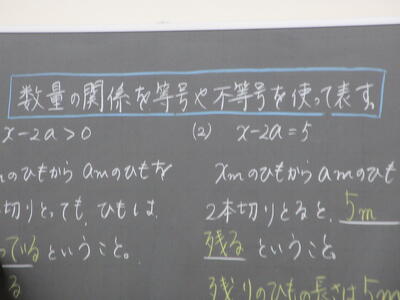 数量の関係を等号や不等号を使って表す。
x-2a>0
のひもから amのひもを
切りとっても、ひもは
ている ということ。
る
(2) x-2a=5
xmのひもからamのひも
2本切りとると、5m
残る ということ。
残りのひもの長さは5m